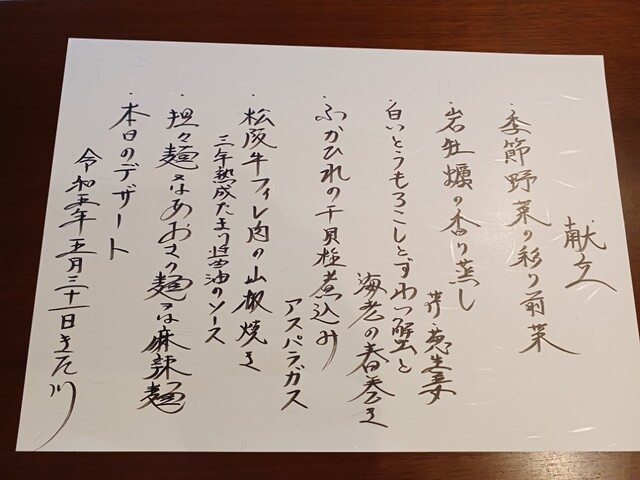 献立
・季節野菜の彩り前菜
・岩牡蠣の香り蒸し
芽葱生姜
・白いとうもろこしとずわい蟹と
海老の春巻き
・ふかひれの干貝柱煮込み
アスパラガス
・松阪牛フィレ肉の山椒焼き
三年熟成たまり醤油のソース
・担々麺又はあおさの麺又は麻辣麺
・本日のデザート
令和五年五月三十一日